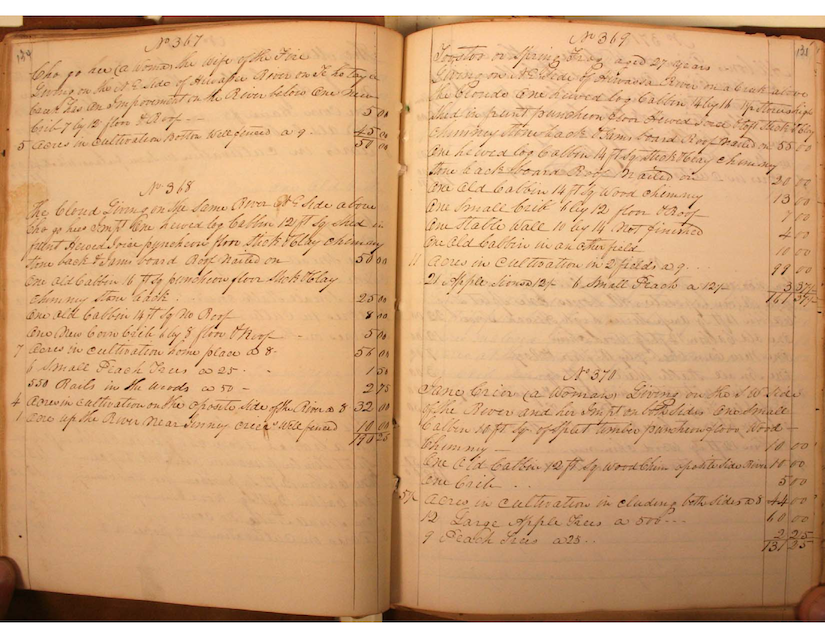 134
No 367
Cho go hee (a woman) the wife of the Fore
Living on the N.E. Side of Hiwassee River on
Creek has an Improvement on the River below One new
Crib 7 by 12 floor & Roof 5 00
5 Acres in cultivation Bottom Well fenced a 9. 45 00
50 00
No 368
The Cloud Living on the Same River N E Side above
Cho go hees Impt One hewed log Cabbin 12 ft Sq Shed in
front Hewed Joice puncheon floor Stick & Clay Chimney
Stone back & Jams board Roof Nailed on 50 00
One old Cabbin 16 ft Sq Puncheon floor Stick & Clay
Chimney Stone back 25 00
One old Cabbin 14 ft Sq No Roof 8 00
One New Corn Crib 6 by 8 floor & Roof 5 00
7 Acres in Cultivation home place a 8 56 00
6 Small Peach Trees a 25 1 50
550 Rails in the Woods a 50 2 75
4 Acres in Cultivation on the oposite Side of the River a 8 32 00
1 One up the River Near Creek Well fenced 10 00
190 25
No 369
135
or Spring Frog aged 27 years
Living on N.E Side of Hiwassa River on a Creek above
the Clouds One Hewed log Cabbin 14 by 16
Shed in front puncheon floor Hewed Joice & loft Stick & Clay
Chimney Stone back & Jams board Roof Nailed on 55 00
One hewed log Cabbin 14 ft Sq Stick & Clay Chimney
Stone back board Roof Nailed on 30 00
One Old Cabbin 14 ft Sq Wood Chimney 13 00
One Small Crib 6 by 12 floor & Roof 7 00
One Stable Wall 10 by 14 Not finished 4 00
One Old Cabbin in another field 10 00
11 Acres in Cultivation in 2 fields a 9 99 00
21 Apple 12½ 6 Small Peach a 12½
No 370
Jane Crier (a Woman) Living on the S W Side
of the River and her Impt on both Sides One Small
Cabbin 10 ft Sq of Split timber puncheon floor Wood
Chimney 10 00
One Old Cabbin 12 ft Sq Wood Chim oposite Side River 10 00
One Crib 5 00
5½ Acres in Cultivation in cluding both Sides a 8 44 00
12 Large Apple Trees a 500 60 00
9 Peach Trees a 25 2 25
131 25